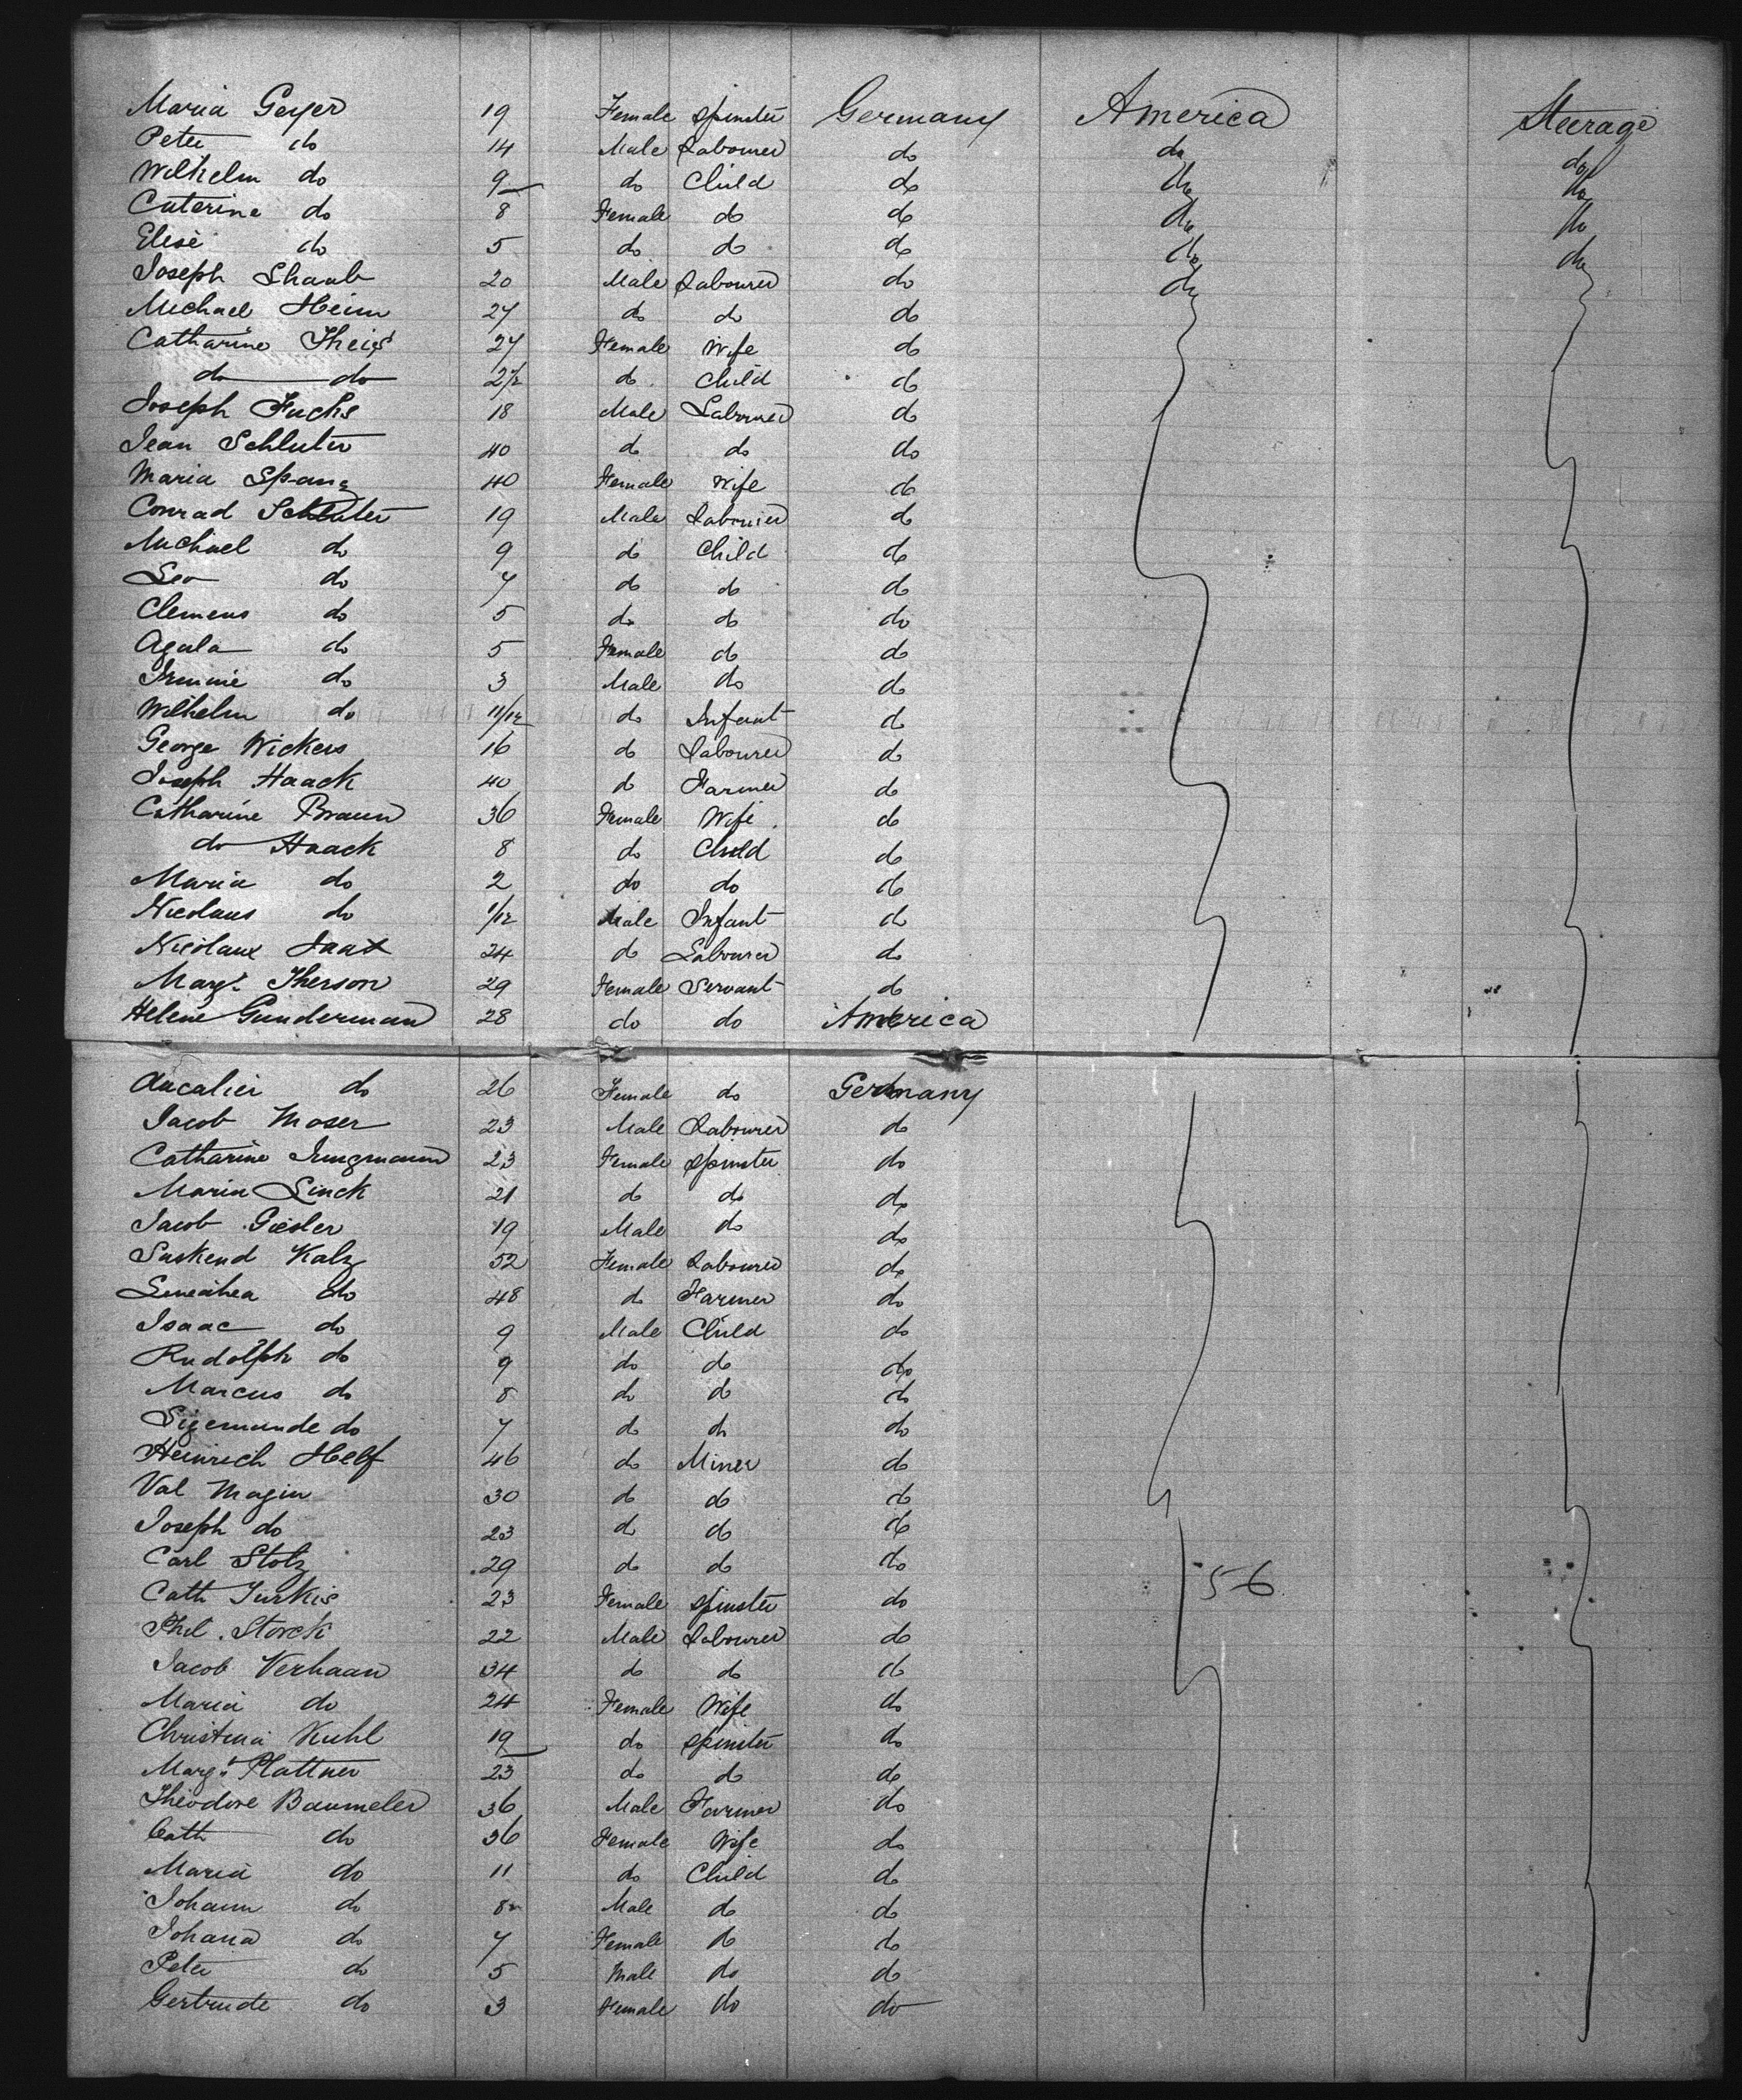 Maria Geyer 19 Female Spinster Germany America Steerage
Peter do 14 Male Labourer do do do
Wilhelm do 9 do Child do do do
Caterine do 8 Female do do do do
Elise do 5 do do do do do
Joseph Shaab 20 Male Labourer do do
Michael Heim 27 do do do
Catharine Theis 27 Female Wife do
do do 2 1/2 do Child do
Joseph Fuchs 18 Male Labourer do
Jean Schluter 40 do do do
Maria Spang 40 Female Wife do
Conrad Schluter 19 Male Labourer do
Michael do 9 do Child do
Leo do 7 do do do
Clemens do 5 do do do
Agala do 5 Female do do
do 3 Male do do
Wilhelm do 11/12 do Infant do
George Wickers 16 do Labourer do
Joseph Haack 40 do Farmer do
Catharine Braun 36 Female Wife do
do Haack 8 do Child do
Maria do 2 do do do
Nicolaus do 1/12 Male Infant do
Nicolaux Saax 24 do Labourer do
Margt Therson 29 Female Servant do
Helene Gunderman 28 do do America
do 26 Female do Germany
Jacob Moser 23 Male Labourer do
Catharine Jungmann 23 Female Spinster do
Maria Linck 21 do do do
Jacob Giesler 19 Male do do
Suskend Kalz 52 Female Labourer do
do 48 do Farmer do
Isaac do 9 Male Child do
Rudolph do 9 do do do
Marcus do 8 do do do
Sigemunde do 7 do do do
Heinrich Helf 46 do Miner do
Val Magin 30 do do do
Joseph do 23 do do do
Carl Stolz 29 do do do 56
Cath Jurkis 23 Female Spinster do
Phil. Storck 22 Male Labourer do
Jacob Verhaan 34 do do do
Maria do 24 Female Wife do
Christina Kuhl 19 do Spinster do
Margt Plattner 23 do do do
Theodore Baumeler 36 Male Farmer do
Cath do 36 Female Wife do
Maria do 11 do Child do
Johann do 8 Male do do
Johana do 7 Female do do
Peter do 5 Male do do
Gertrude do 3 Female do do